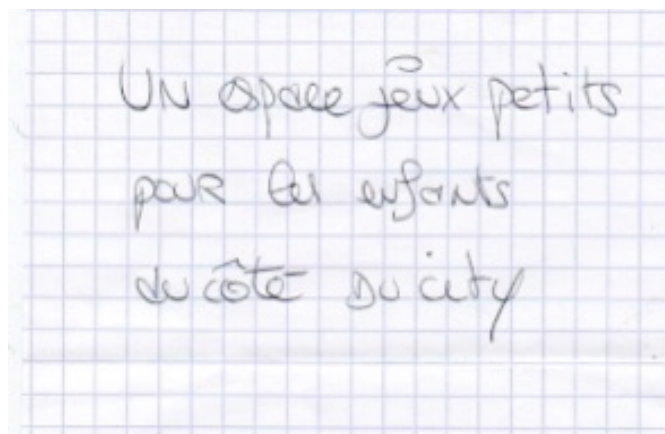 UN espace jeux petits
pour les enfants
du côté Du city